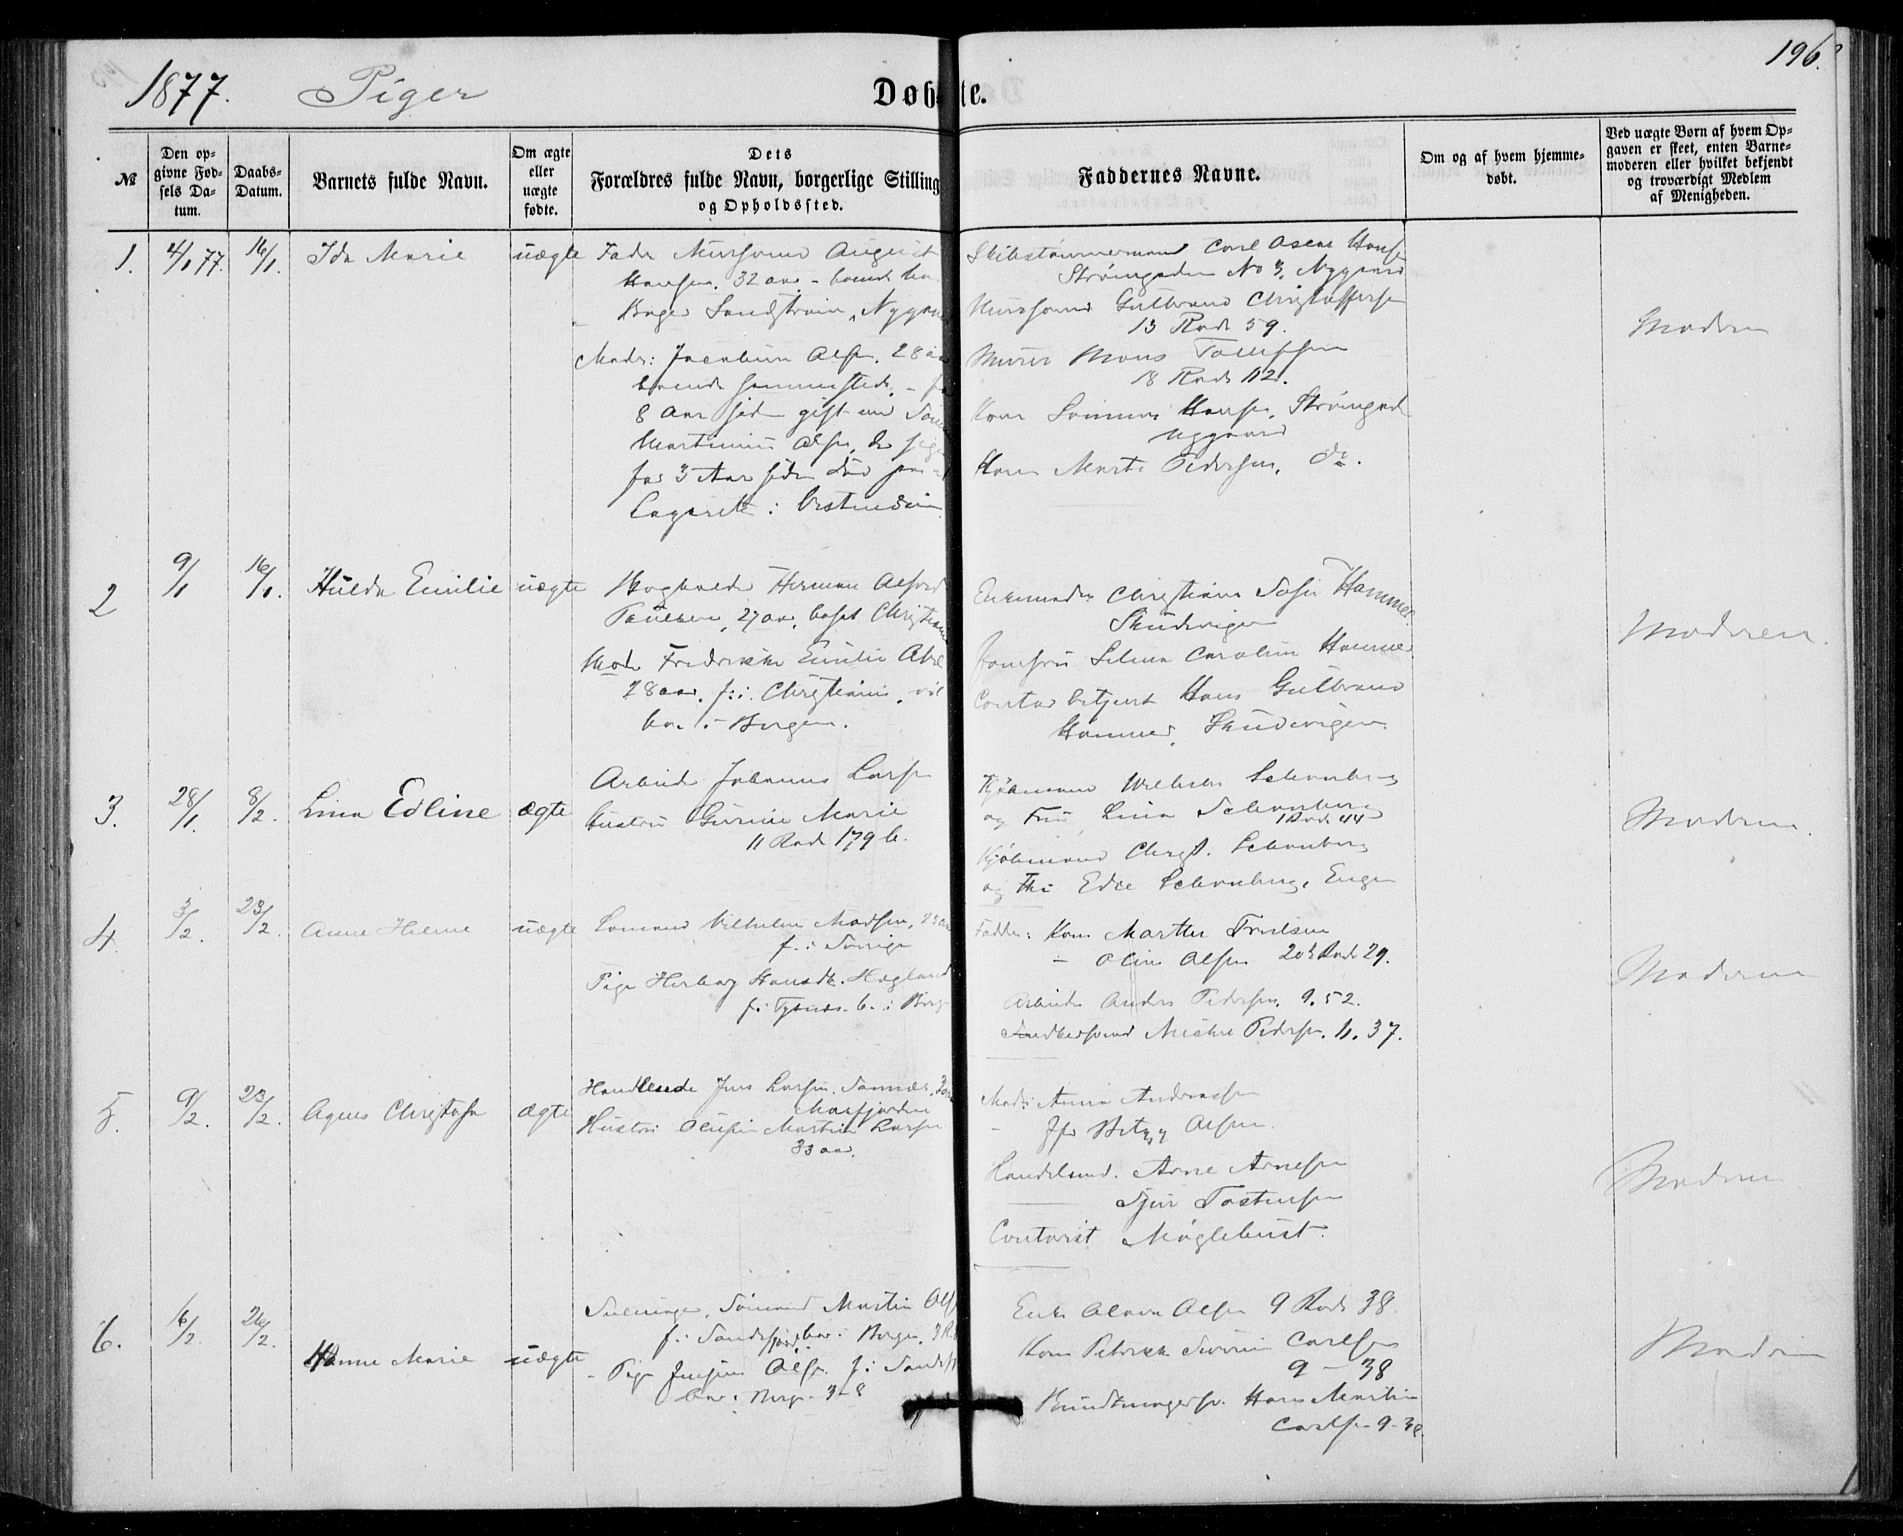 1877. Piger
Døbte.
196.
№
Den opgivne Fødsels Datum.
Daabs-Datum.
Barnets fulde Navn.
Om ægte eller uægte fødte.
Dets Forældres fulde Navn, borgerlige Stilling og Opholdssted.
Faddernes Navne.
Om og af hvem hjemmedøbt.
Ved uægte Børn af hvem Opgaven er skeet, enten Barnemoderen eller hvilket bekjendt og troværdigt Medlem af Menigheden.
1. 4/1 77. 16/1. Ida Marie uægte
Fader Mursvend August
Hansen. 32 aar - boende hos
Bager Sandstrøm, Nygaard
Moder: Jacobine Olsen. 28 aar
boende sammesteds. - for
8 Aar siden gift med
Martinius Olsen, der
for 3 Aar siden død paa
Lazareth i Vestindien
Skibstømmermand Carl Oscar Hansen
Strømgaden No 3. Nygaard
Mursvend Gulbrand Christoffersen
13 Rode 59.
Murer Mons Tollefsen
18 Rode 112.
Kone Hansen. Strømgad
Nygaard
Kone Marte Pedersen, do.
Moderen
2 9/1 16/1. Hulda Emilie uægte
Bogholder Herman Alfred
Paulsen, 27 aar, bosat Christiania
Moder Fredrikke Emilie
28 aar. f: i Christiania,
bor i Bergen.
Enkemadam Christiane Sofie Hammer
Skudevigen
Jomfru Selma Caroline Hammer
Contorbetjent Hans Gulbrand
Hammer, Skudevigen.
Moderen.
3. 28/1. 8/2. Lina Edline ægte
Arbeider Johannes Larsen
Hustru Gurine Marie
11 Rode 179 b.
Kjøbmand Wilhelm Schanberg
og Fru Lina Schanberg
1 Rode 44
Kjøbmand Christ. Schanberg
og Edle Schanberg, Engen
Moderen.
4. 3/2. 23/2. Anne Helene uægte
Sømand Vilhelm Madsen, 23 aar
f. i Sverige
Pige Herborg Hansdtr. Hegland
f: i Tysnes. b. i Berg
Fadder: Kone Marthe Troelsen
- Oline Olsen 20 Rode 29.
Arbeider Anders Pedersen, 9. 52.
Snedkersvend Michel Pedersen. 11. 37.
Moderen
5. 9/2. 23/2. Agnes ægte
Handlende Jens Larsen.
Masfjorden
Hustru Martin Larsen
33 aar.
Mad: Anna Andreassen
- Jfr Betzy Olsen.
Handelsmd. Arne Arnesen
Sjur Tostensen
Contorist Møglebust.
Moderen
6. 16/2. 26/2. Hanne Marie uægte
Sømand Martin Ols
f. i Sandefjord, bor i Bergen, 3 R.
- Pige Olsen f. i Sandefj
bor i Berg. 3-8
Enke Olava Olsen 9 Rode 38.
Kone Severine Carlsen
9 - 38
Bundtmagersv. Hans Martin
Carlsen 9-38
Moderen